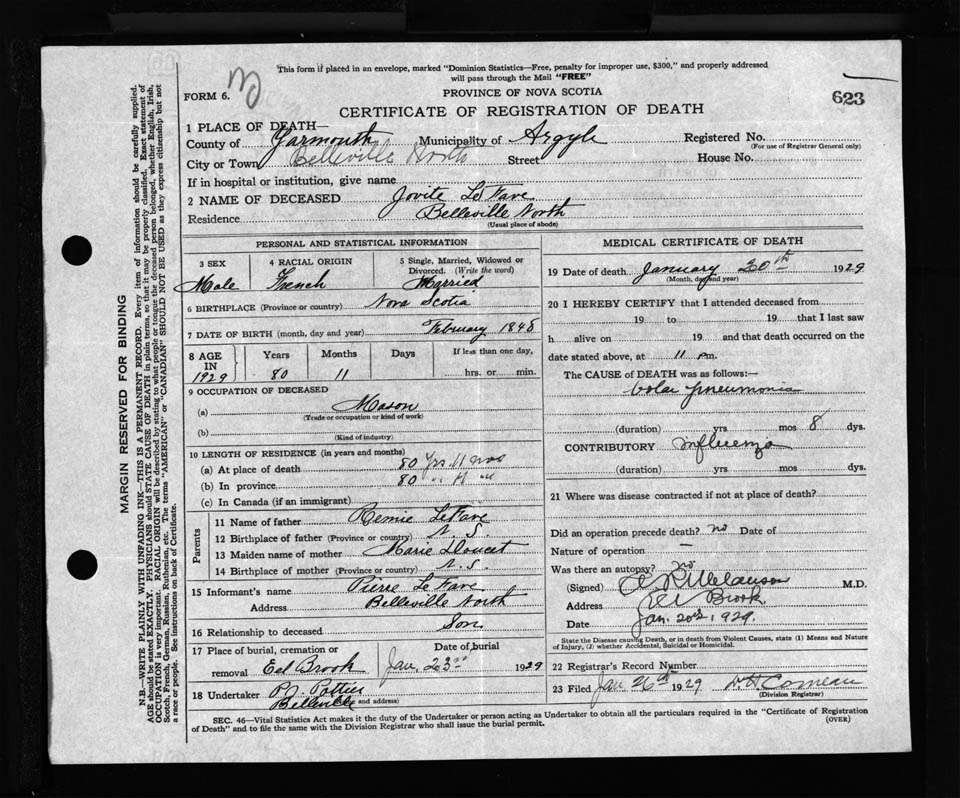 This form if placed in an envelope, marked "Dominion Statistics—Free, penalty for improper use, $300," and properly addressed
will pass through the Mail "FREE"
FORM 6.
PROVINCE OF NOVA SCOTIA
623
CERTIFICATE OF REGISTRATION OF DEATH
1 PLACE OF DEATH—
County of Yarmouth Municipality of Argyle Registered No.
(For use of Registrar General only)
City or Town Belleville North Street House No.
If in hospital or institution, give name
2 NAME OF DECEASED Jovite LeFave
Residence Belleville North
(Usual place of abode)
PERSONAL AND STATISTICAL INFORMATION
3 SEX 4 RACIAL ORIGIN 5 Single, Married, Widowed or
Divorced. (Write the word)
Male French Married
6 BIRTHPLACE (Province or country) Nova Scotia
7 DATE OF BIRTH (month, day and year) February 1848
8 AGE Years Months Days If less than one day,
IN
1929 80 11 hrs. or min.
9 OCCUPATION OF DECEASED
(a) Mason
(Trade or occupation or kind of work)
(b)
(Kind of industry)
10 LENGTH OF RESIDENCE (in years and months)
(a) At place of death 80 Yrs. 11 mos
(b) In province 80 " 11 "
(c) In Canada (if an immigrant)
Parents
11 Name of father Remie LeFave
12 Birthplace of father (Province or country) N. S.
13 Maiden name of mother Marie Doucet
14 Birthplace of mother (Province or country) N. S.
15 Informant's name Pierre LeFave
Address Belleville North
16 Relationship to deceased Son
17 Place of burial, cremation or Date of burial
removal Eel Brook Jan. 23rd 1929
18 Undertaker P. J. Pottier
Belleville and address)
MEDICAL CERTIFICATE OF DEATH
19 Date of death January 20th 1929
(Month, day and year)
20 I HEREBY CERTIFY that I attended deceased from
19 to 19 that I last saw
h alive on 19 and that death occurred on the
date stated above, at 11 pm.
The CAUSE OF DEATH was as follows:—
lobar pneumonia
(duration) yrs mos 8 dys.
CONTRIBUTORY influenza
(duration) yrs mos dys.
21 Where was disease contracted if not at place of death?
Did an operation precede death? no Date of
Nature of operation —
Was there an autopsy? no
(Signed) M.D.
Address Eel Brook
Date Jan. 1929.
State the Disease causing Death, or in death from Violent Causes, state (1) Means and Nature
of Injury, (2) whether Accidental, Suicidal or Homicidal.
22 Registrar's Record Number
23 Filed Jan 26th 1929 Comeau
(Division Registrar)
SEC. 46—Vital Statistics Act makes it the duty of the Undertaker or person acting as Undertaker to obtain all the particulars required in the "Certificate of Registration
of Death" and to file the same with the Division Registrar who shall issue the burial permit.
(OVER)
MARGIN RESERVED FOR BINDING
N.B.—WRITE PLAINLY WITH UNFADING INK—THIS IS A PERMANENT RECORD. Every item of information should be carefully supplied.
AGE should be stated EXACTLY. PHYSICIANS should STATE CAUSE OF DEATH in plain terms, so that it may be properly classified. Exact statement of
OCCUPATION is very important. RACIAL ORIGIN will be described by stating to what people or tongue the deceased person belonged, whether English, Irish,
Scotch, French, German, Russian, Ruthenian, etc. The terms "AMERICAN" or "CANADIAN" SHOULD NOT BE USED as they express citizenship but not
a race or people. See instructions on back of Certificate.